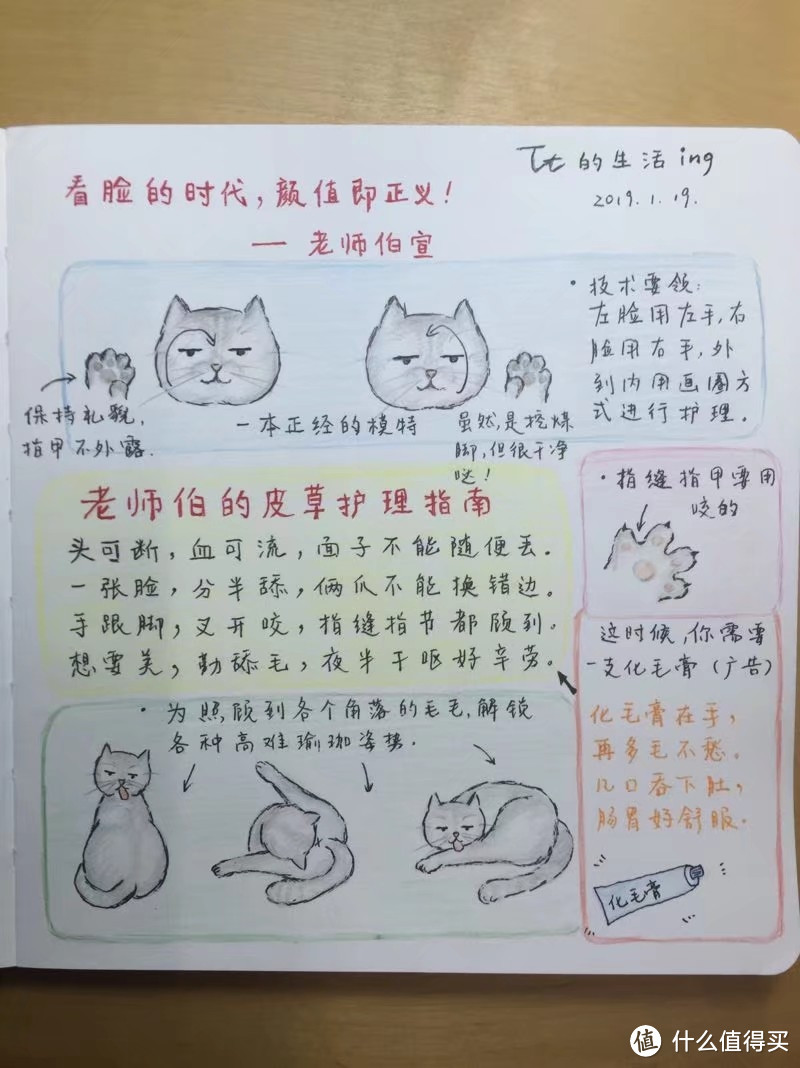 Tt的生活ing
2019.1.19.
看脸的时代,颜值即正义!
— 老师伯宣
·技术要领:
左脸用左手,右
脸用右手,外
到内用画圈方
式进行护理。
保持礼貌,
指甲不外露.
一本正经的模特
虽然,是挖煤
脚,但很干净
哒!
老师伯的皮草护理指南
头可断,血可流,面子不能随便丢.
一张脸,分半舔,俩爪不能换错边.
手跟脚,叉开咬,指缝指节都顾到.
想要美,勤舔毛,夜半干呕好辛劳.
·指缝指甲要用
咬的
·为照顾到各个角落的毛毛,解锁
各种高难瑜珈姿势.
这时候,你需要
一支化毛膏(广告)
化毛膏在手,
再多毛不愁.
几口吞下肚,
肠胃好舒服.
化毛膏
值 什么值得买